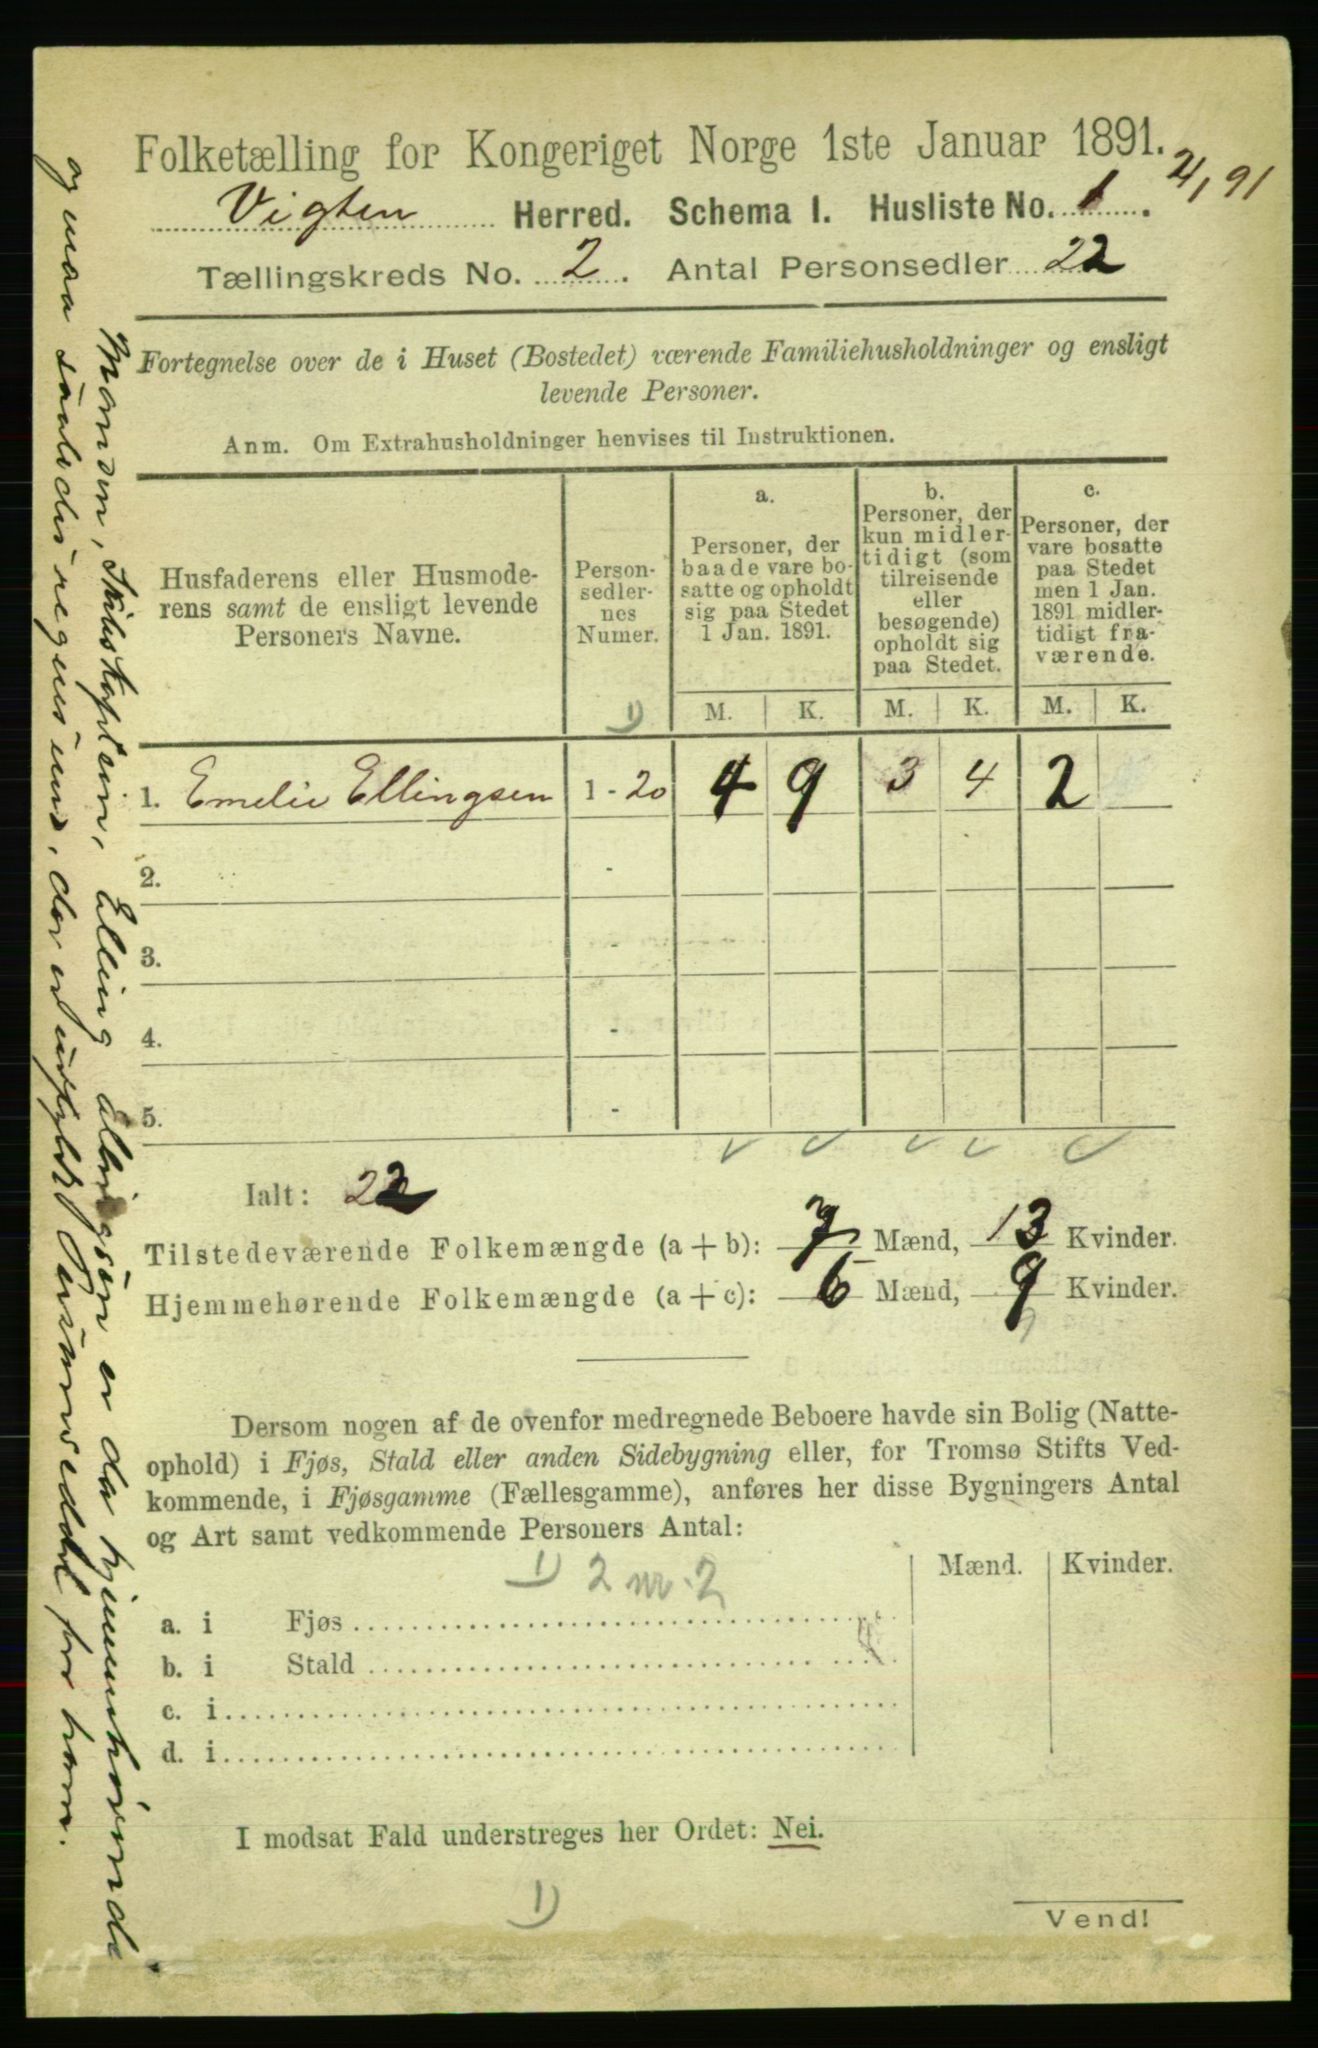 Folketælling for Kongeriget Norge 1ste Januar 1891.
2/1 91
Vigten Herred. Schema I. Husliste No. 1.
Tællingskreds No. 2. Antal Personsedler 22
Fortegnelse over de i Huset (Bostedet) værende Familiehusholdninger og ensligt
levende Personer.
Anm. Om Extrahusholdninger henvises til Instruktionen.
Husfaderens eller Husmode-
rens samt de ensligt levende
Personers Navne.
Person-
sedler-
nes
Numer.
1)
a.
Personer, der
baade vare bo-
satte og opholdt
sig paa Stedet
1 Jan. 1891.
b.
Personer, der
kun midler-
tidigt (som
tilreisende
eller
besøgende)
opholdt sig
paa Stedet.
c.
Personer, der
vare bosatte
paa Stedet
men 1 Jan.
1891 midler-
tidigt fra-
værende.
M. K. M. K. M. K.
1. Emelie Ellingsen 1 - 20 4 9 3 4 2
2. -
3. -
4. -
5. -
Ialt: 22
Tilstedeværende Folkemængde (a + b): 7 Mænd, 13 Kvinder.
Hjemmehørende Folkemængde (a + c): 6 Mænd, 9 Kvinder.
9
Dersom nogen af de ovenfor medregnede Beboere havde sin Bolig (Natte-
ophold) i Fjøs, Stald eller anden Sidebygning eller, for Tromsø Stifts Ved-
kommende, i Fjøsgamme (Fællesgamme), anføres her disse Bygningers Antal
og Art samt vedkommende Personers Antal:
1) 2 nr. 2
Mænd. Kvinder.
a. i Fjøs
b. i Stald
c. i
d. i
I modsat Fald understreges her Ordet: Nei.
1)
Vend!
Manden, Skibskaptein, Elling Ellingsen er da hjemmehørende
og maa saaledes regnes med, der er udfyldt Personseddel for ham.